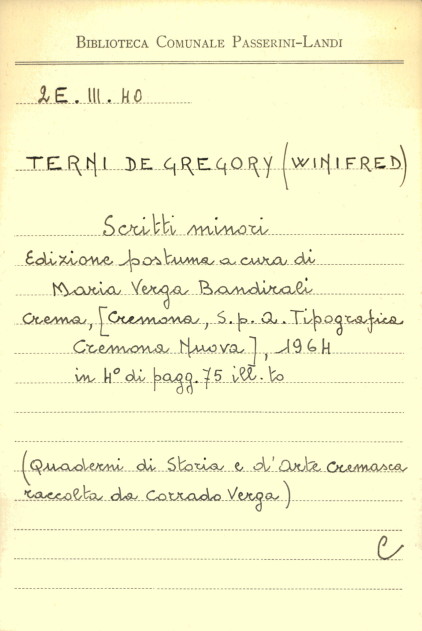 BIBLIOTECA COMUNALE PASSERINI-LANDI
2E.III.40
TERNI DE GREGORY (WINIFRED)
Scritti minori
Edizione postuma a cura di
Maria Verga Bandirali
Crema, [Cremona, S.p.a. Tipografica
Cremona Nuova], 1964
in 4° di pagg. 75 ill.to
(Quaderni di Storia e d'Arte Cremasca
raccolta da Corrado Verga)
C